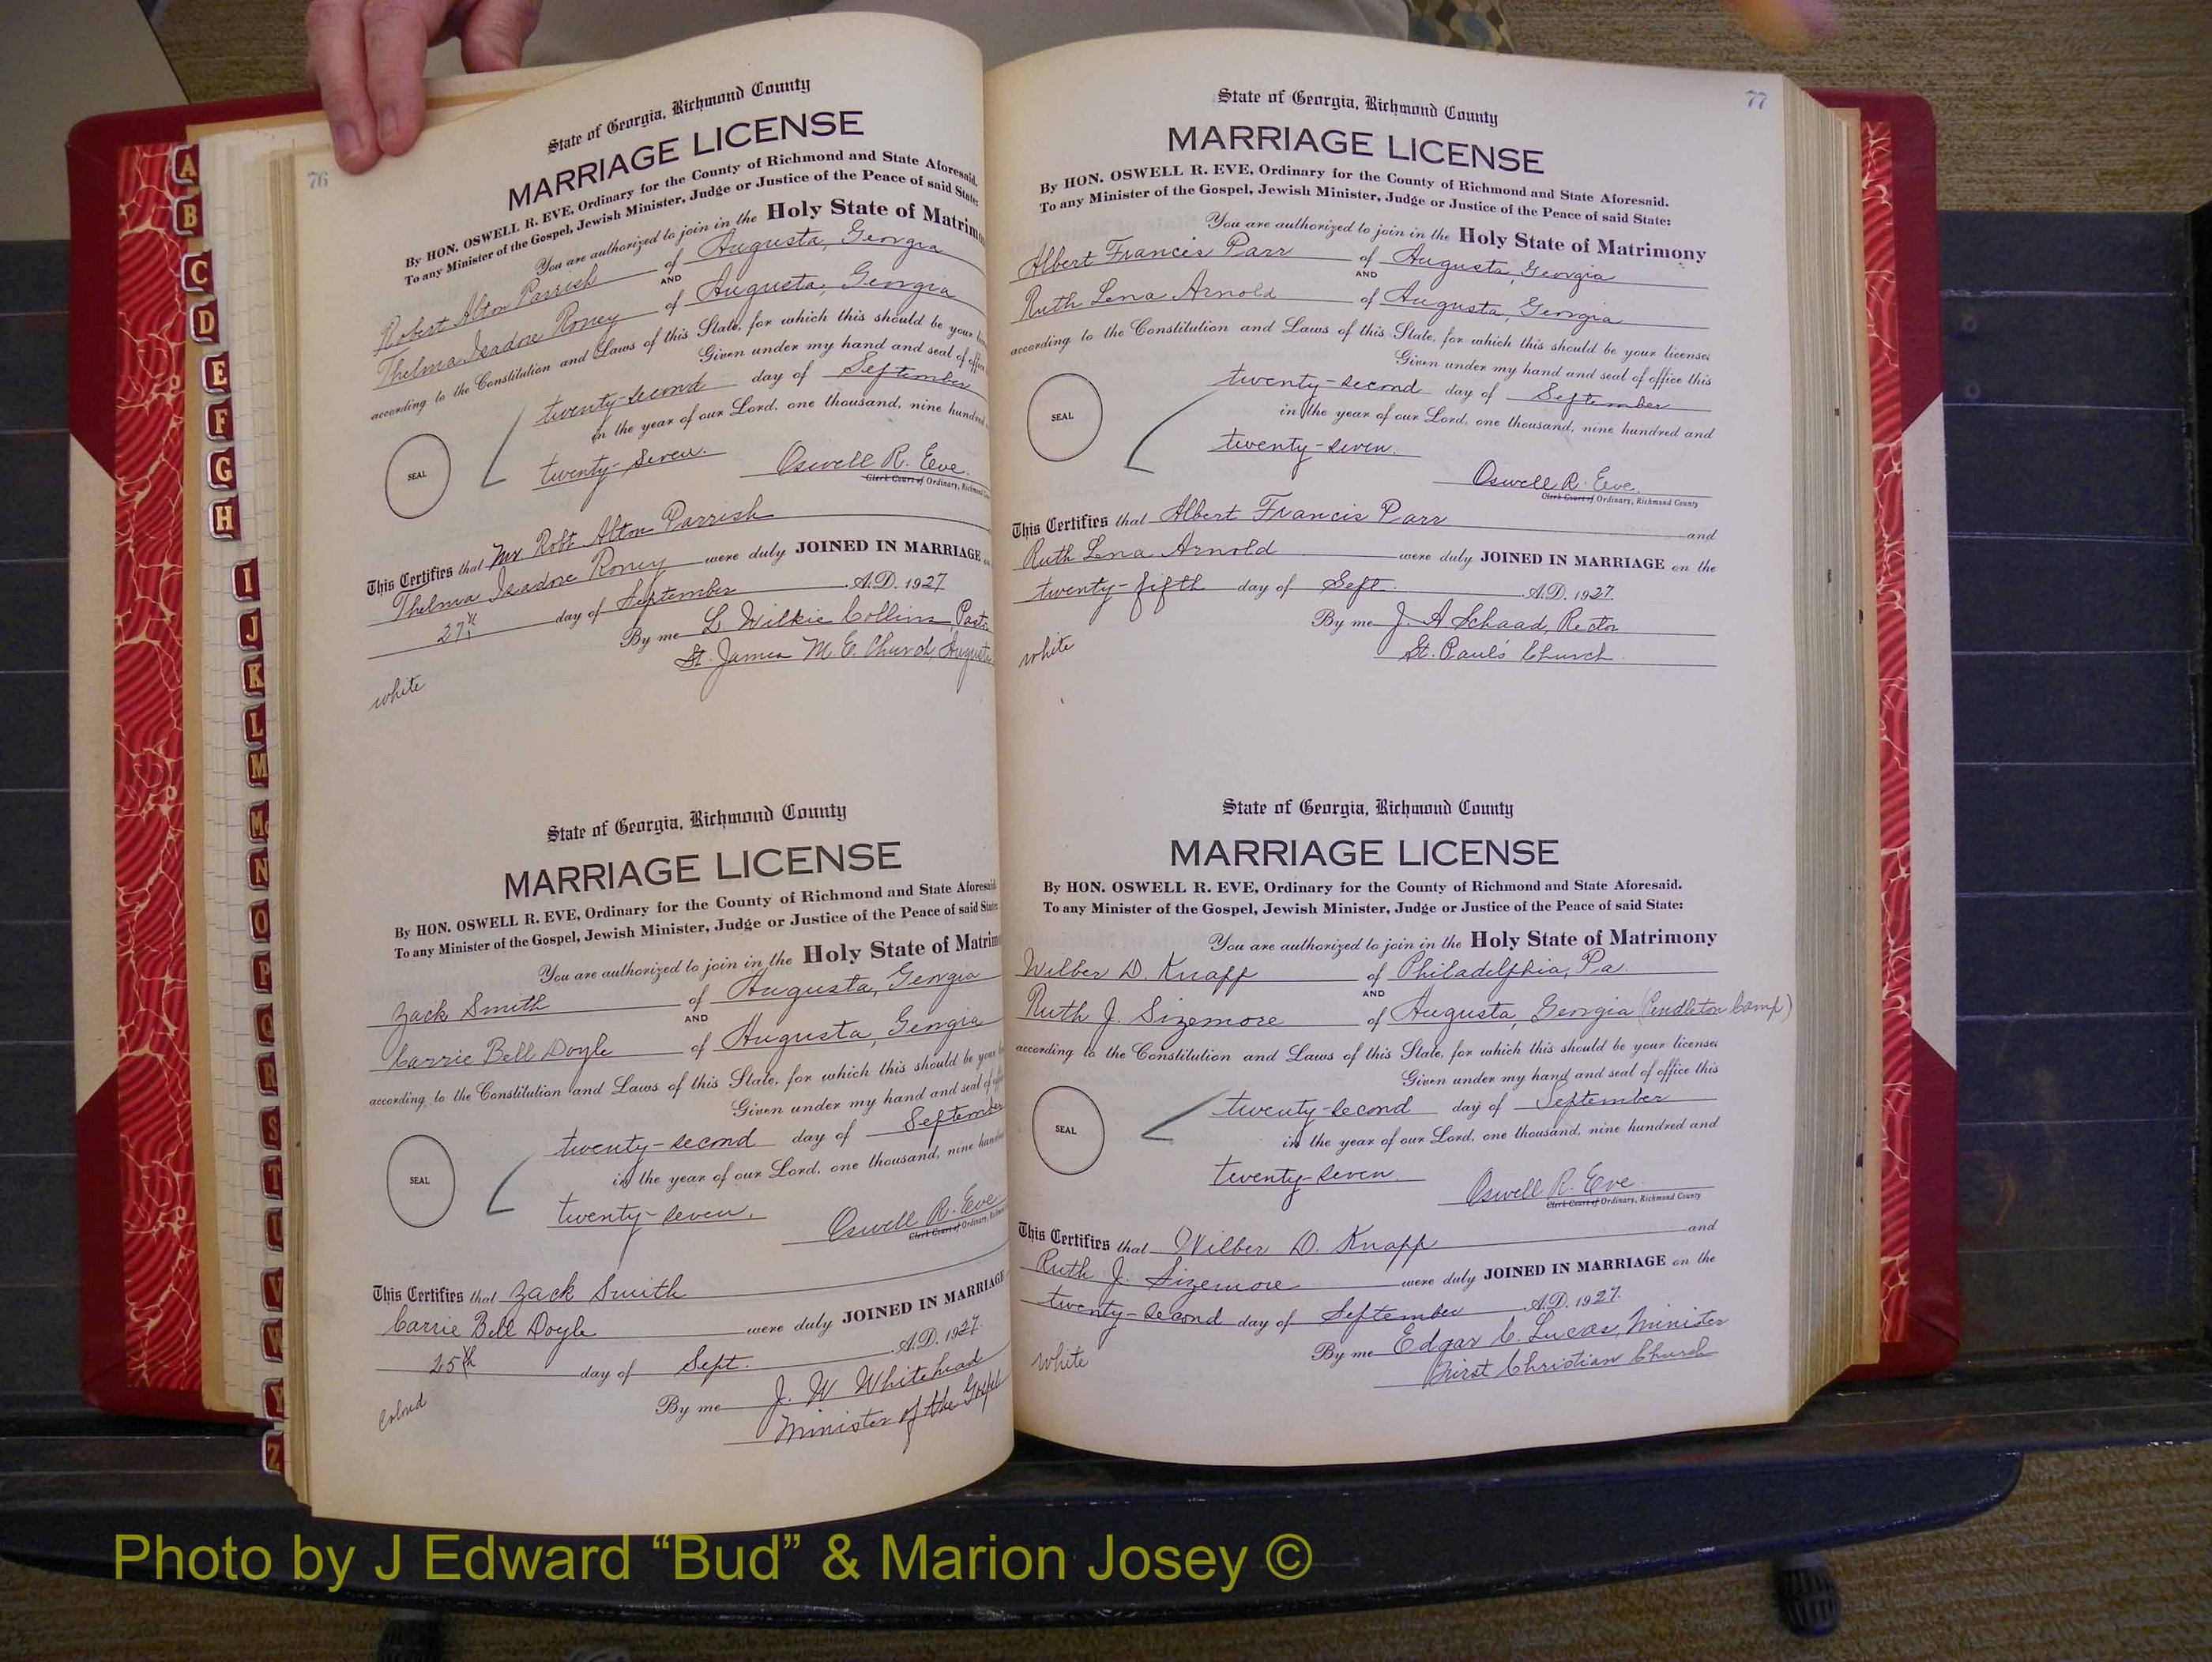 76
State of Georgia, Richmond County
MARRIAGE LICENSE
By HON. OSWELL R. EVE, Ordinary for the County of Richmond and State Aforesaid.
To any Minister of the Gospel, Jewish Minister, Judge or Justice of the Peace of said State:
You are authorized to join in the Holy State of Matrimo
Robert Alton Parrish of Augusta, Georgia
AND
Thelma Isadore Roney of Augusta, Georgia
according to the Constitution and Laws of this State, for which this should be your
Given under my hand and seal of office
twenty-second day of September
in the year of our Lord, one thousand, nine hundred
SEAL
twenty-seven.
Oswell R. Eve.
Clerk Court of Ordinary, Richmond
This Certifies that Mr Robt Alton Parrish
Thelma Isadore Roney were duly JOINED IN MARRIAGE
27th day of September A.D. 1927
By me L. Wilkie Collins, Pastor
St. James M. E. Church, Augusta
white
State of Georgia, Richmond County
MARRIAGE LICENSE
By HON. OSWELL R. EVE, Ordinary for the County of Richmond and State Aforesaid.
To any Minister of the Gospel, Jewish Minister, Judge or Justice of the Peace of said State:
You are authorized to join in the Holy State of Matrim
Zack Smith of Augusta, Georgia
AND
Carrie Bell Doyle of Augusta, Georgia
according to the Constitution and Laws of this State, for which this should be your
Given under my hand and seal of
twenty-second day of September
in the year of our Lord, one thousand, nine hundred
SEAL
twenty-seven.
Oswell R. Eve
Clerk Court of Ordinary,
This Certifies that Zack Smith
Carrie Bell Doyle were duly JOINED IN MARRIAGE
25th day of Sept. A.D. 1927.
By me J. W. Whitehead
Minister of the Gospel
colored
77
State of Georgia, Richmond County
MARRIAGE LICENSE
By HON. OSWELL R. EVE, Ordinary for the County of Richmond and State Aforesaid.
To any Minister of the Gospel, Jewish Minister, Judge or Justice of the Peace of said State:
You are authorized to join in the Holy State of Matrimony
Albert Francis Parr of Augusta, Georgia
AND
Ruth Lena Arnold of Augusta, Georgia
according to the Constitution and Laws of this State, for which this should be your license;
Given under my hand and seal of office this
twenty-second day of September
in the year of our Lord, one thousand, nine hundred and
SEAL
twenty-seven.
Oswell R. Eve.
Clerk Court of Ordinary, Richmond County
This Certifies that Albert Francis Parr and
Ruth Lena Arnold were duly JOINED IN MARRIAGE on the
twenty-fifth day of Sept. A.D. 1927.
By me J. A Schaad, Rector
St. Paul's Church.
white
State of Georgia, Richmond County
MARRIAGE LICENSE
By HON. OSWELL R. EVE, Ordinary for the County of Richmond and State Aforesaid.
To any Minister of the Gospel, Jewish Minister, Judge or Justice of the Peace of said State:
You are authorized to join in the Holy State of Matrimony
Wilber D. Knapp of Philadelphia, Pa.
AND
Ruth J. Sizemore of Augusta, Georgia (Pendleton Camp)
according to the Constitution and Laws of this State, for which this should be your license;
Given under my hand and seal of office this
twenty-second day of September
in the year of our Lord, one thousand, nine hundred and
SEAL
twenty-seven.
Oswell R. Eve.
Clerk Court of Ordinary, Richmond County
This Certifies that Wilber D. Knapp and
Ruth J. Sizemore were duly JOINED IN MARRIAGE on the
twenty-second day of September A.D. 1927.
By me Edgar C. Lucas, Minister
First Christian Church
white
A
B
C
D
E
F
G
H
I
J
K
L
M
Mc
N
O
P
Q
R
S
T
U
V
W
Y
Z
Photo by J Edward “Bud” & Marion Josey ©